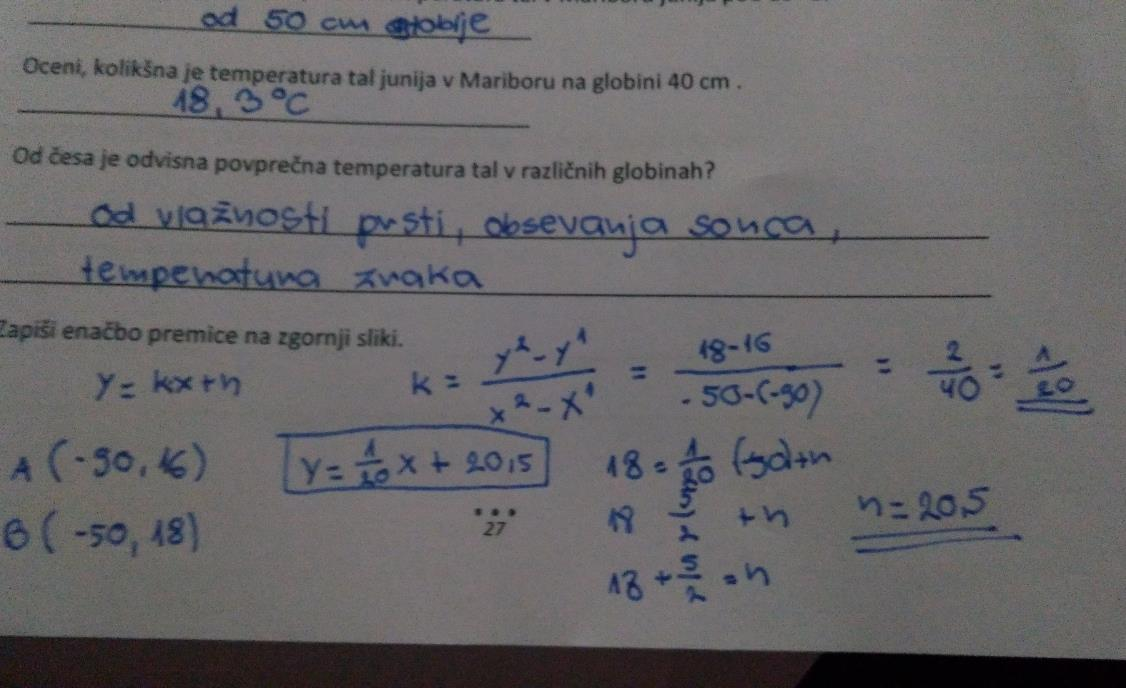 od 50 cm globlje
Oceni, kolikšna je temperatura tal junija v Mariboru na globini 40 cm .
18,3°C
Od česa je odvisna povprečna temperatura tal v različnih globinah?
od vlažnosti prsti, obsevanja sonca,
temperatura zraka
Zapiši enačbo premice na zgornji sliki.
y = kx+n k = y²-y¹ / x²-x¹ = 18-16 / -50-(-90) = 2/40 = 1/20
A (-90, 16) y = 1/20 x + 20,5 18 = 1/20 (-50)+n
B (-50, 18) 18 5/2 +n n = 20,5
18 + 5/2 = n
27